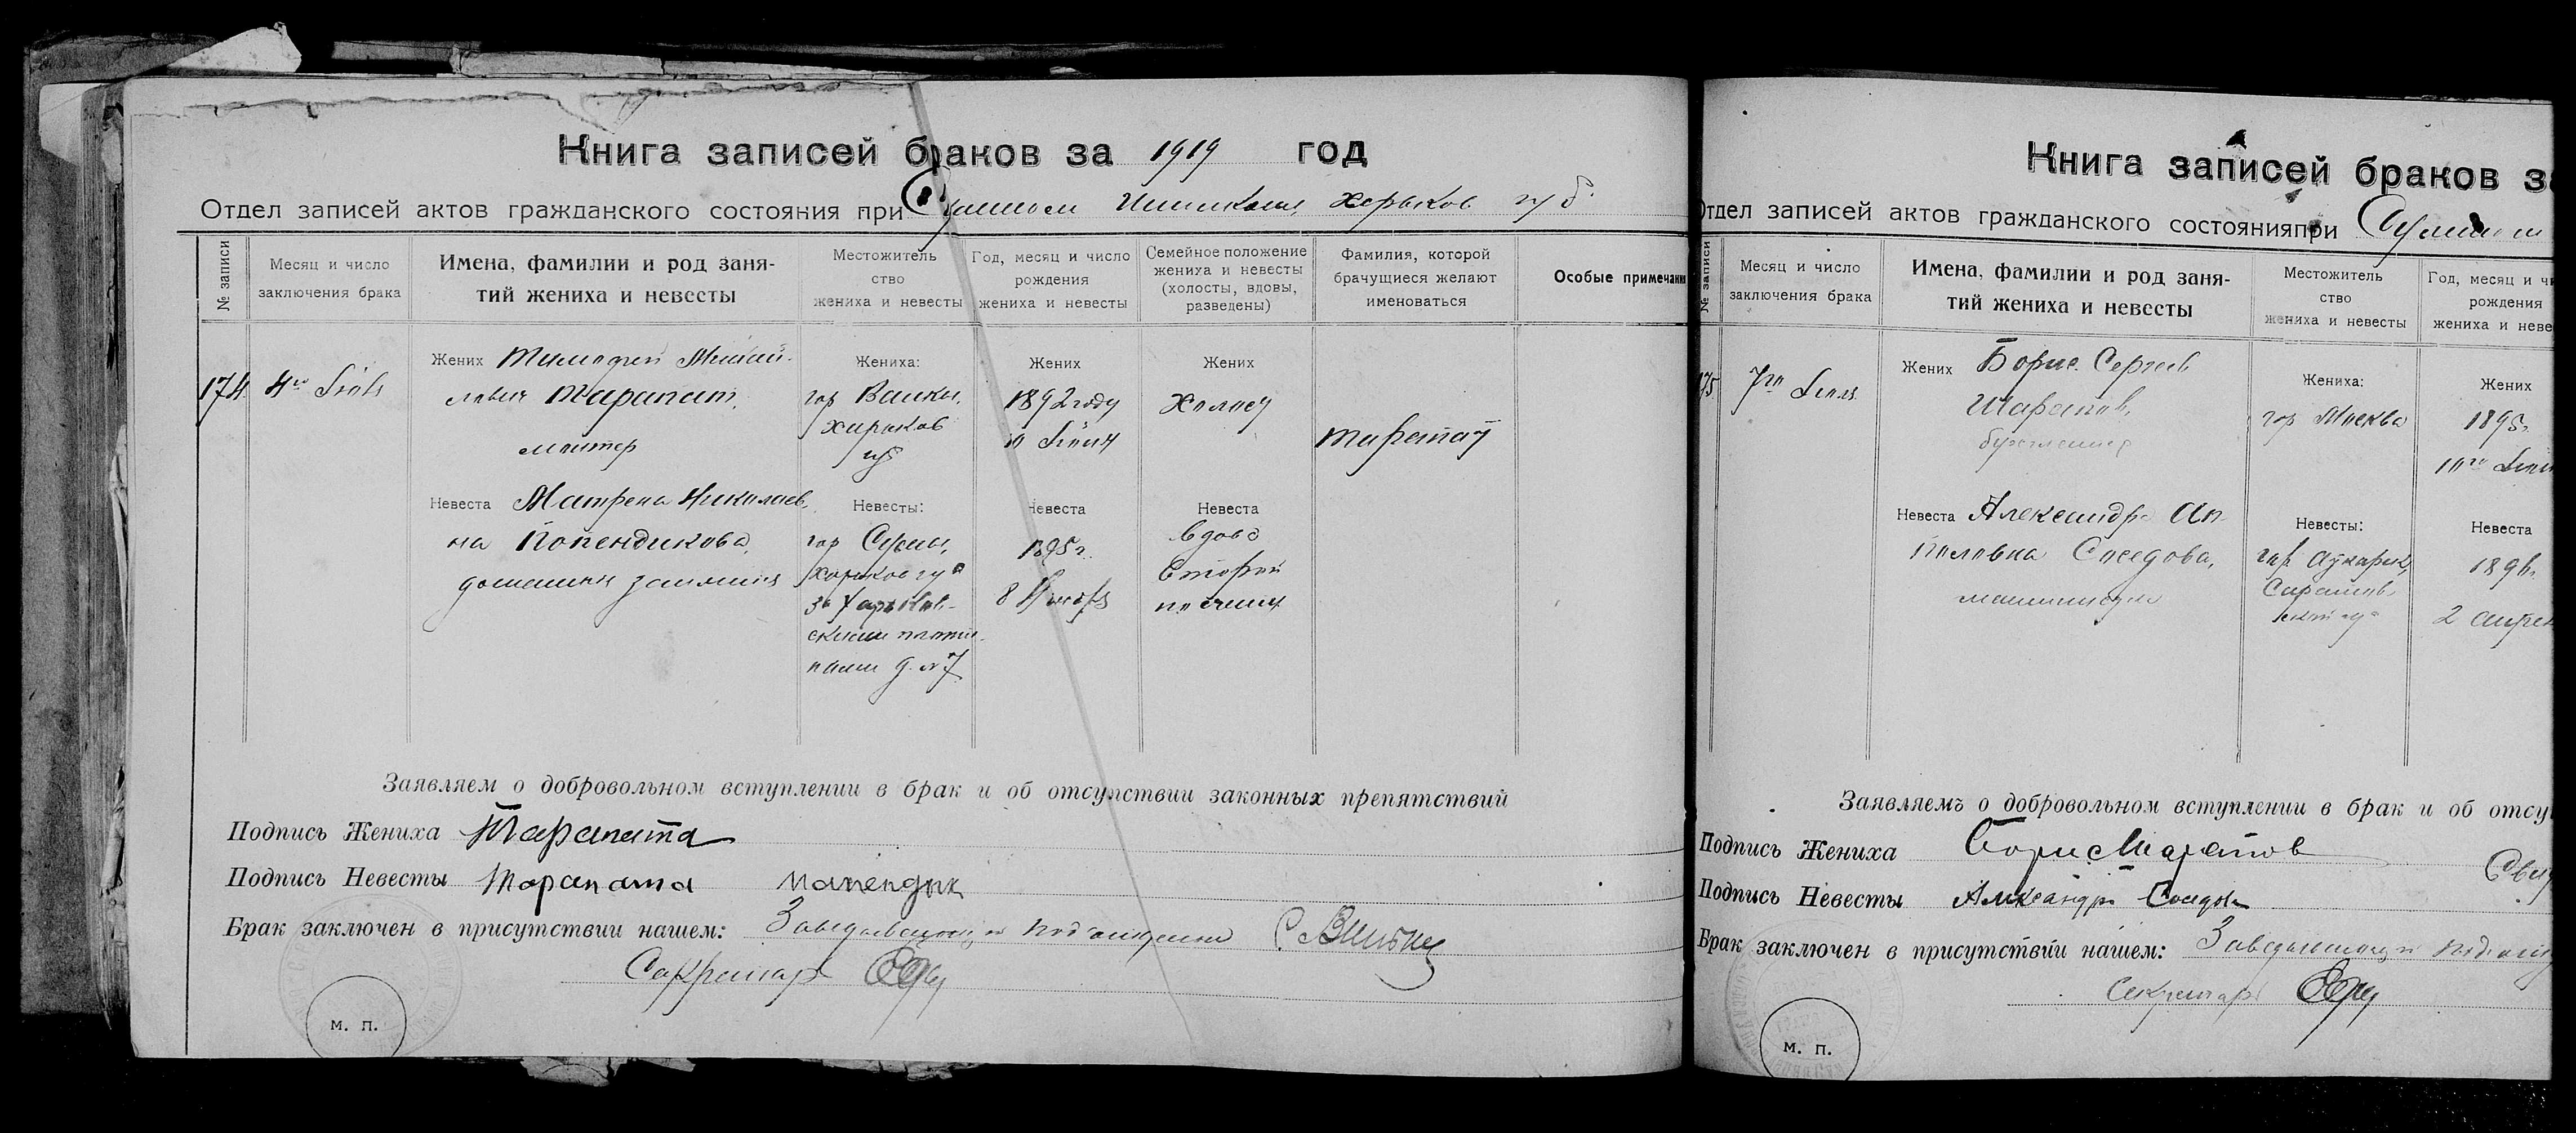 Книга записей браков за 1919 год
Отдел записей актов гражданского состояния при Сумском Харьков губ.
№ записи
Месяц и число
заключения брака
Имена, фамилии и род заня-
тий жениха и невесты
Местожитель
ство
жениха и невесты
Год, месяц и число
рождения
жениха и невесты
Семейное положение
жениха и невесты
(холосты, вдовы,
разведены)
Фамилия, которой
брачущиеся желают
именоваться
Особые примечани
174
4го
Жених Тимофей Михай-
лович Тарапат,
монтер
Невеста Матрена Николаев
на Попендикова,
домашния занятия
Жениха:
гор Валки,
Харьков
губ
Невесты:
гор Сумы,
Харьков губ
За Харьков-
скими
д. №7
Жених
1892 году
10
Невеста
1895г.
8
Жених
Холост
Невеста
вдова
Тарапат
Заявляем о добровольном вступлении в брак и об отсутствии законных препятствий
Подпись Жениха Тарапата
Подпись Невесты Тарапата
Брак заключен в присутствии нашем: Заведывающий
Секретарь
м. п.
Книга записей браков за
Отдел записей актов гражданского состоянияпри Сумском
№ записи
Месяц и число
заключения брака
Имена, фамилии и род заня-
тий жениха и невесты
Местожитель
ство
жениха и невесты
Год, месяц и чи
рождения
жениха и неве
175
7го
Жених Борис Сергеев
Шарапов,
Невеста Александра Ап-
половна Соседова,
машинистка
Жениха:
гор Москва
Невесты:
гор. Аткарск,
Саратов
Жених
1895г.
10го
Невеста
1896г.
2 апрел
Заявляемъ о добровольном вступлении в брак и об отсу
Подпись Жениха Борис Шарапов
Подпись Невесты Александра Соседова
Брак заключен в присутствии нашем: Заведывающий
Секретарь
м. п.